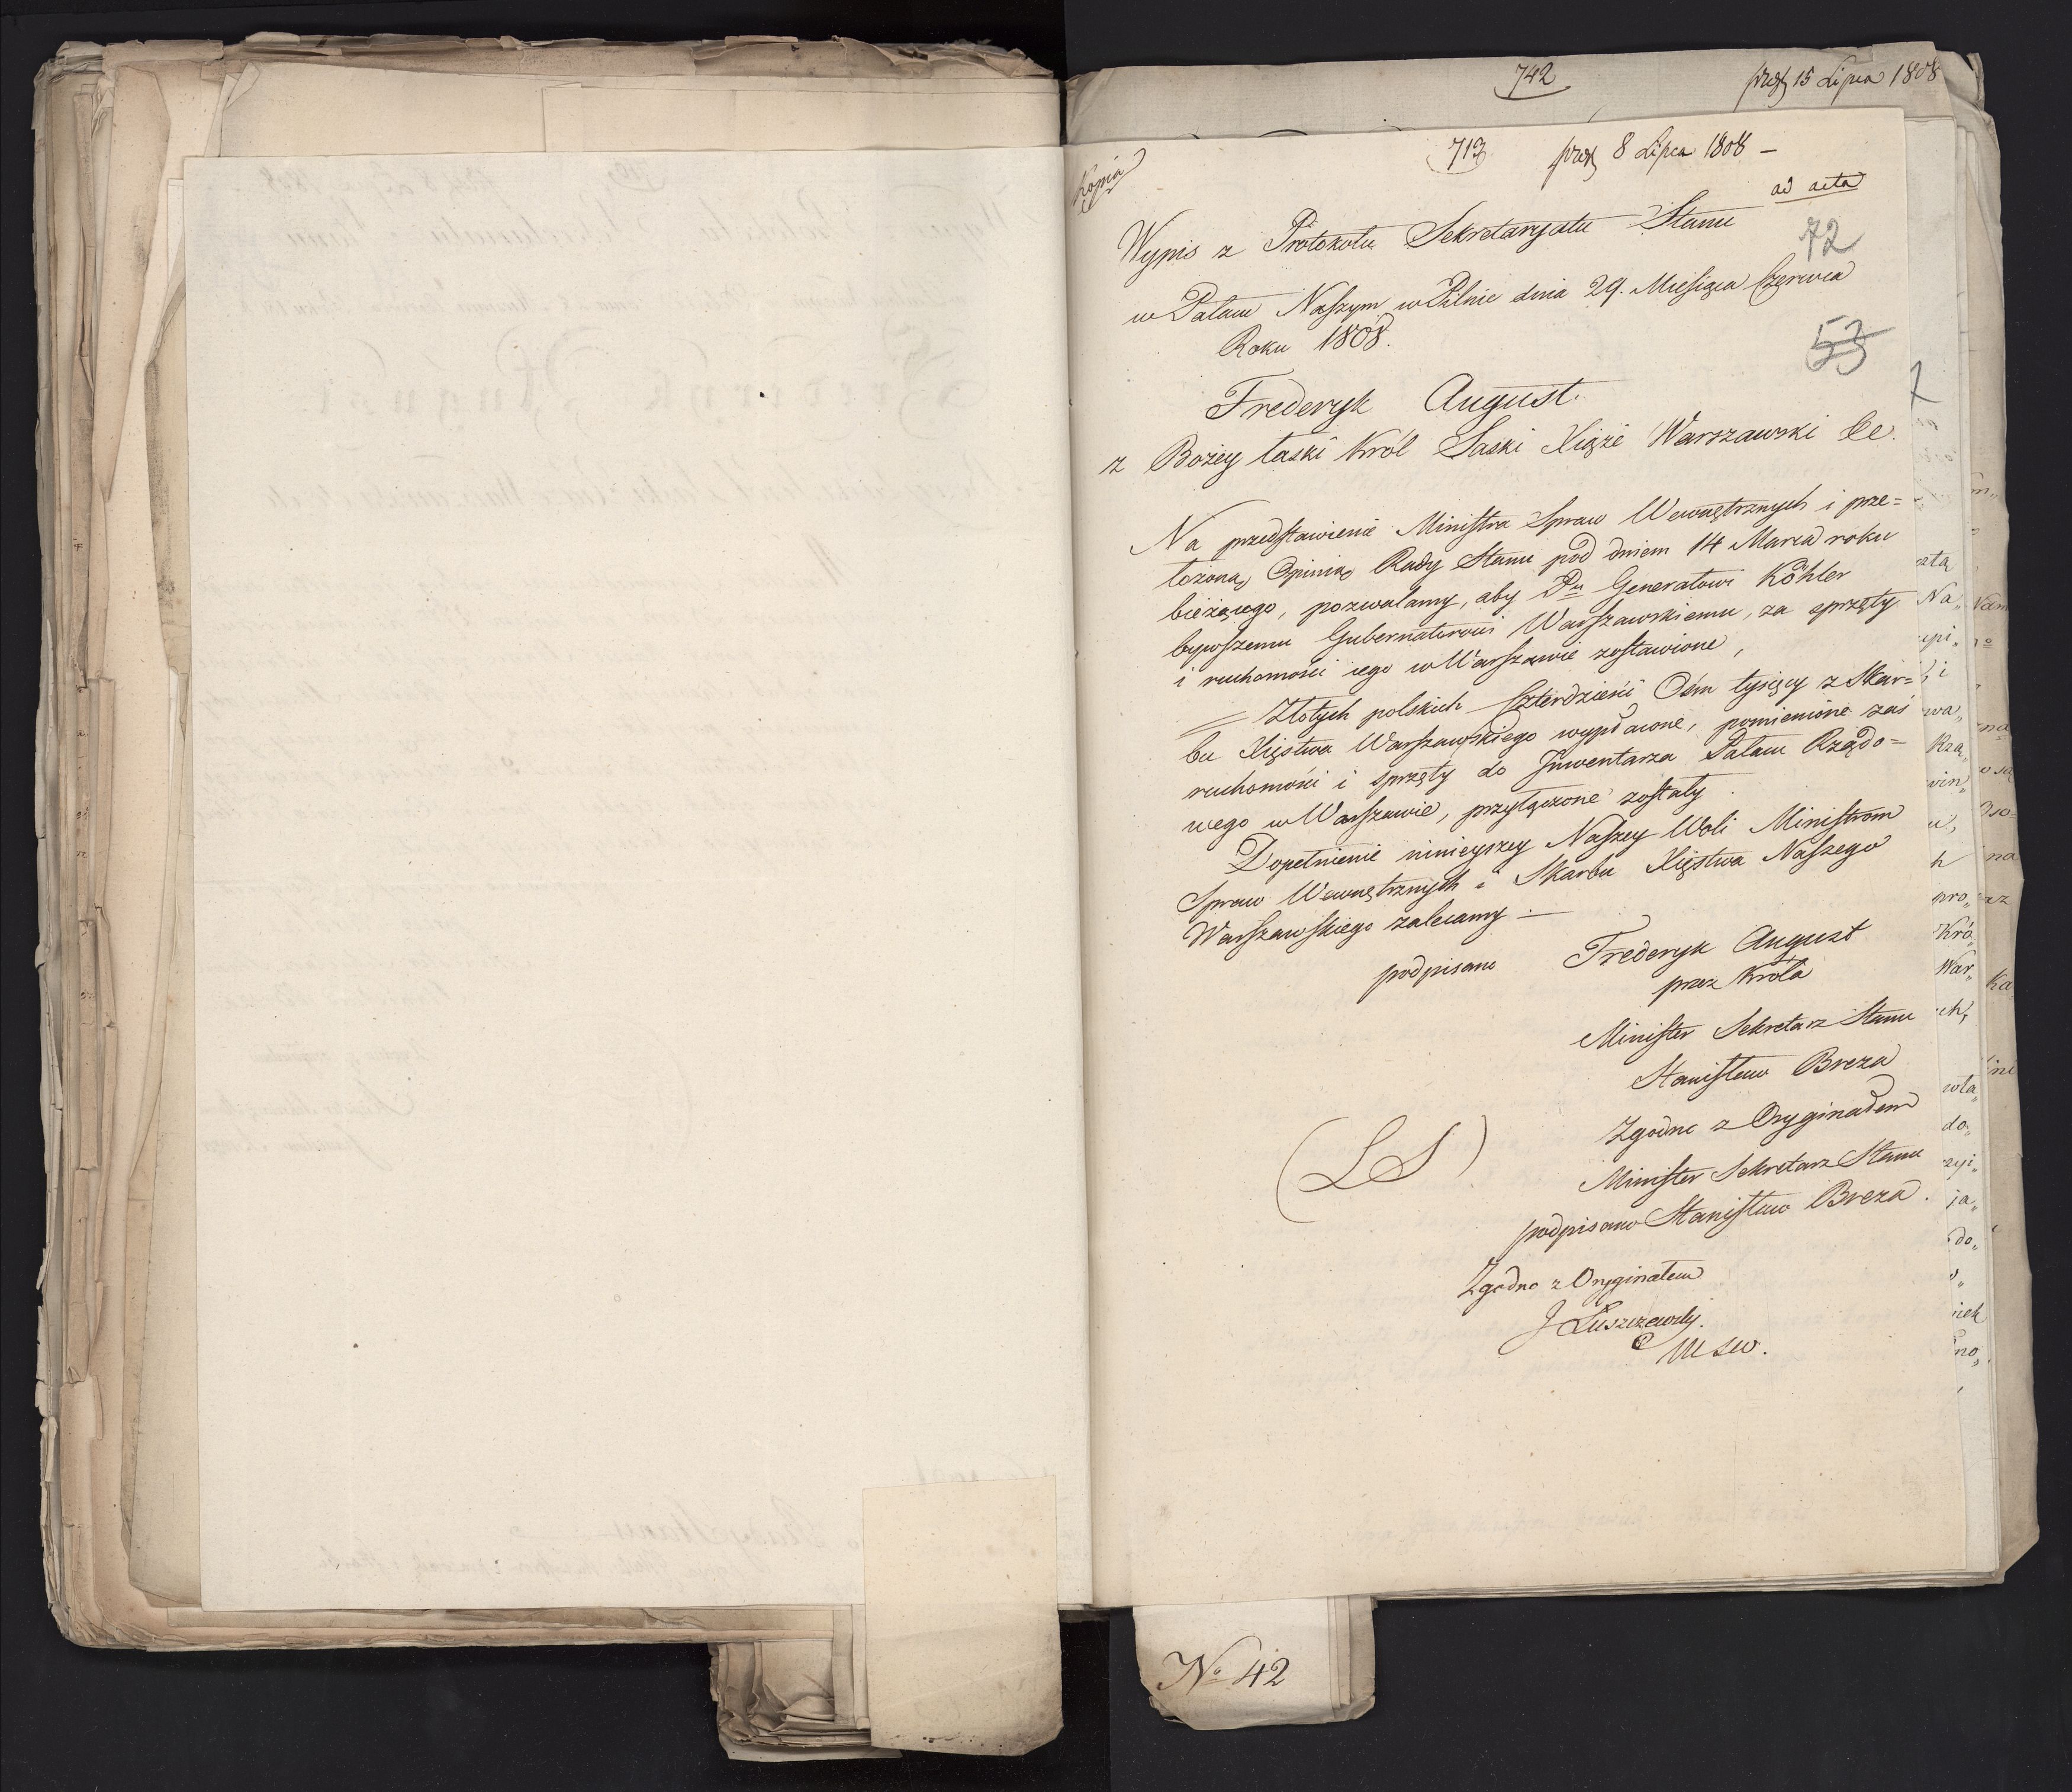 742
prez 15 Lipca 1808
Kopia
713
prez 8 Lipca 1808 –
ad acta
Wypis z Protokołu Sekretaryatu Stanu
72
w Pałacu Naszym w Pilnic dnia 29. Miesiąca Czerwca
Roku 1808.
53
Frederyk August.
z Bożey łaski Król Saski Xiąże Warszawski &c.
Na przedstawienie Ministra Spraw Wewnętrznych i prze=
łożoną Opinią Rady Stanu pod dniem 14 Marca roku
bieżącego, pozwalamy, aby Pu Generałowi Köhler
bywszemu Gubernatorowi Warszawskiemu, za sprzęty
i ruchomości iego w Warszawie zostawione,
= Złotych polskich Czterdzieści Ośm tysięcy z Skar=
bu Xięstwa Warszawskiego wypłacone, pomienione zaś
ruchomości i sprzęty do Inwentarza Pałacu Rządo=
wego w Warszawie, przyłączone zostały.
Dopełnienie ninieyszey Naszey Woli Ministrom
Spraw Wewnętrznych i Skarbu Xięstwa Naszego
Warszawskiego zalecamy. —
podpisano Frederyk August
przez Króla
Minister Sekretarz Stanu
Stanisław Breza
(LS)
Zgodno z Oryginałem
Minister Sekretarz Stanu
podpisano Stanisław Breza.
Zgodno z Oryginałem
J Łuszczewski.
MSW.
No 42